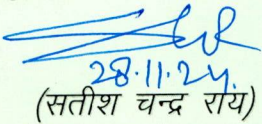 28.11.24.
(सतीश चन्द्र राय)